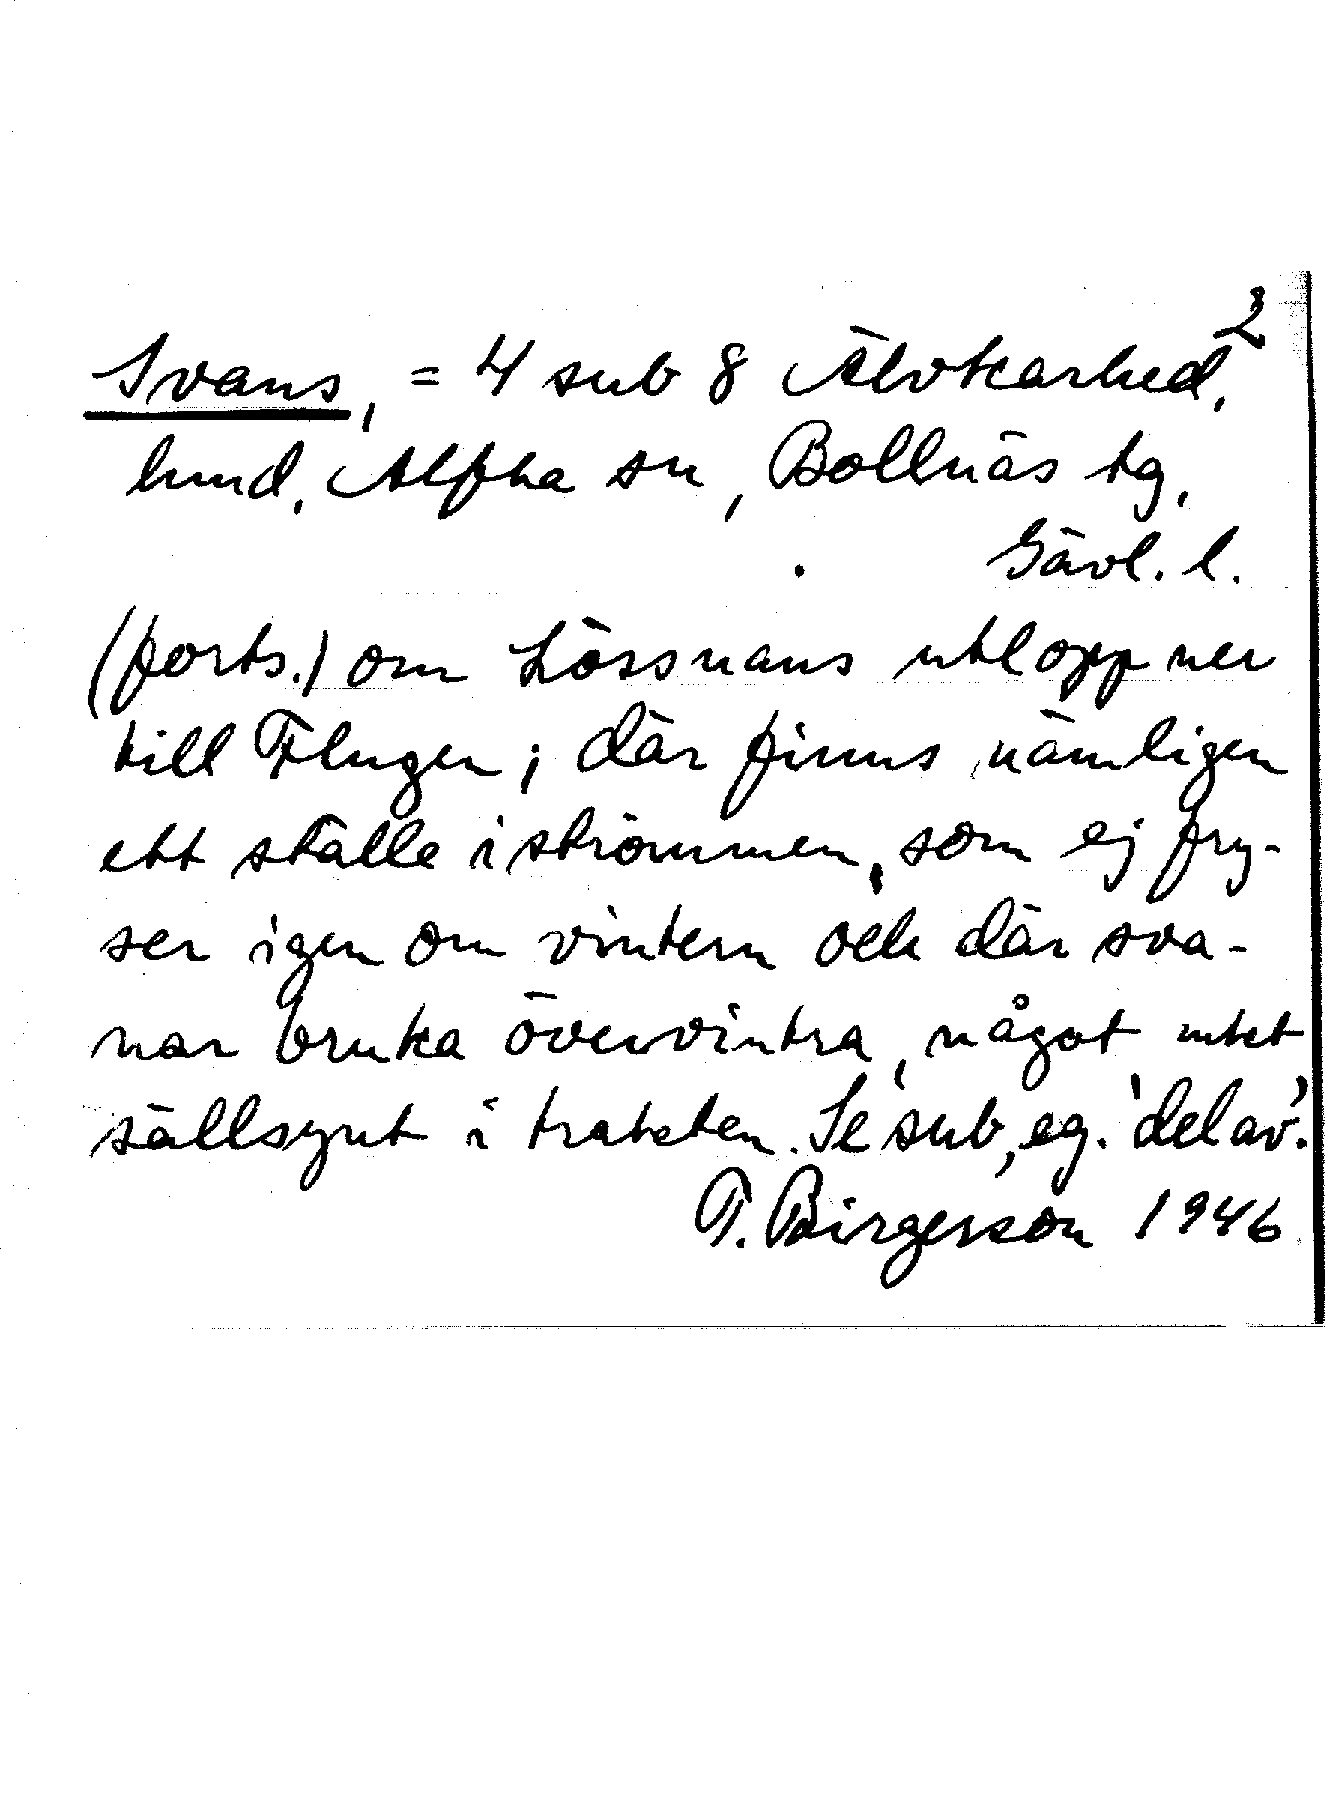 2
Svans, = 4 sub 8 Älvkarhed,
lund, Alfta sn, Bollnäs tg,
Gävl. l.
(forts.) om Lössnans utlopp ner
till Flugen; där finns nämligen
ett ställe i strömmen, som ej fry-
ser igen om vintern och där sva-
nar bruka övervintra, något mkt
sällsynt i trakten. Se sub, eg. 'del av'.
T. Birgerson 1946